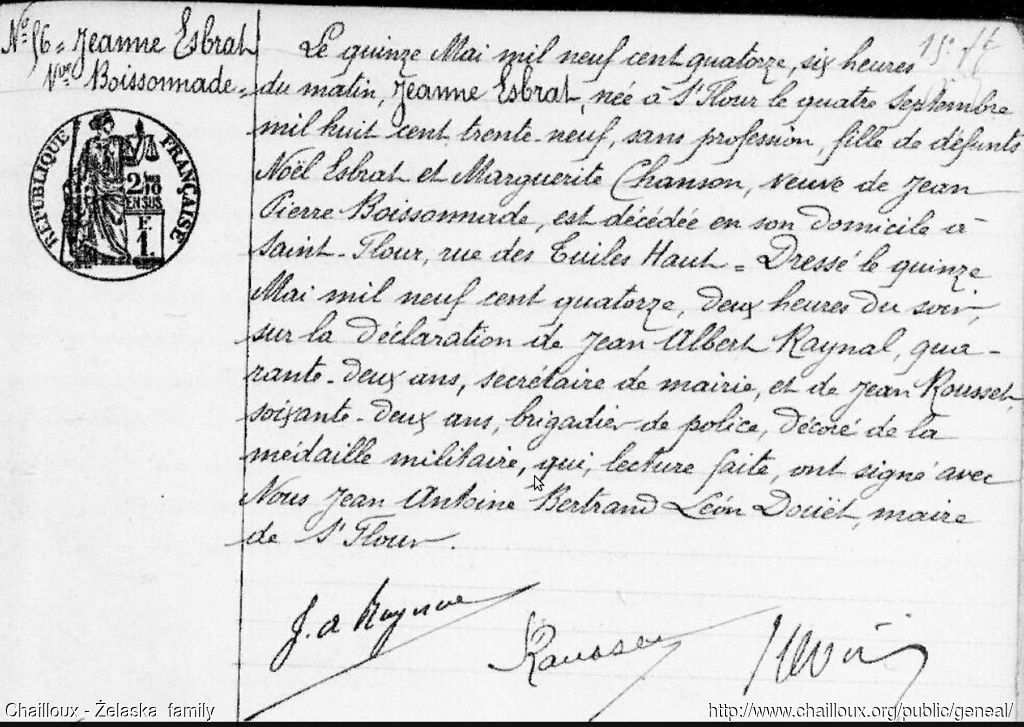 Nº 56 = Jeanne Esbrat
Vve Boissonnade =
RÉPUBLIQUE FRANÇAISE
2/10
EN SUS
F.
1.
Le quinze Mai mil neuf cent quatorze, six heures
du matin, Jeanne Esbrat, née à St Flour le quatre Septembre
mil huit cent trente-neuf, sans profession, fille de défunts
Noël Esbrat et Marguerite Chanson, veuve de Jean
Pierre Boissonnade, est décédée en son domicile à
Saint-Flour, rue des Tuiles Haut = Dressé le quinze
Mai mil neuf cent quatorze, deux heures du soir,
sur la déclaration de Jean Albert Raynal, qua-
rante-deux ans, secrétaire de mairie, et de Jean Rousset,
soixante-deux ans, brigadier de police, décoré de la
médaille militaire, qui, lecture faite, ont signé avec
Nous Jean Antoine Bertrand Léon Douët, maire
de St Flour.
J. A Raynal
Rousset
Chailloux - Żelaska family
http://www.chailloux.org/public/geneal/